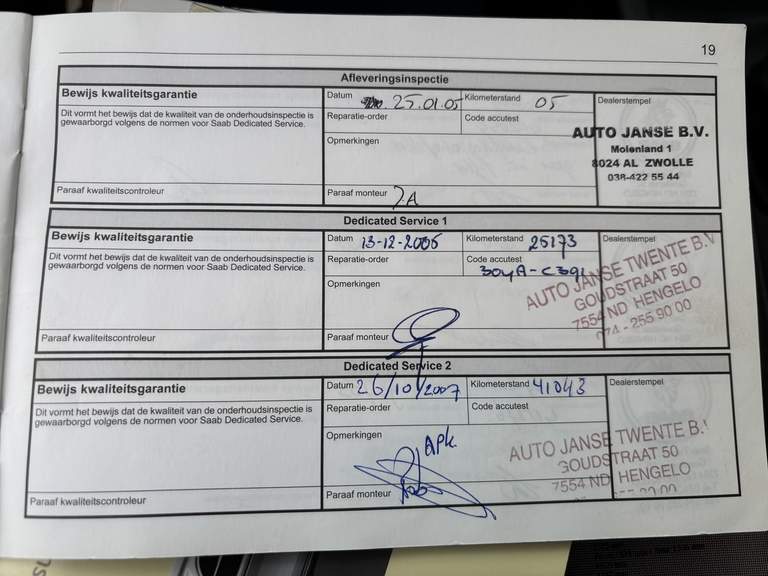 19
Afleveringsinspectie
Bewijs kwaliteitsgarantie
Dit vormt het bewijs dat de kwaliteit van de onderhoudsinspectie is
gewaarborgd volgens de normen voor Saab Dedicated Service.
Paraaf kwaliteitscontroleur
Datum 25.01.05 Kilometerstand 05
Reparatie-order Code accutest
Opmerkingen
Paraaf monteur JA
Dealerstempel
AUTO JANSE B.V.
Molenland 1
8024 AL ZWOLLE
038-422 55 44
Dedicated Service 1
Bewijs kwaliteitsgarantie
Dit vormt het bewijs dat de kwaliteit van de onderhoudsinspectie is
gewaarborgd volgens de normen voor Saab Dedicated Service.
Paraaf kwaliteitscontroleur
Datum 13-12-2006 Kilometerstand 25173
Reparatie-order Code accutest
Opmerkingen
Paraaf monteur
Dealerstempel
AUTO JANSE TWENTE B.V
GOUDSTRAAT 50
7554 ND HENGELO
074 - 255 90 00
Dedicated Service 2
Bewijs kwaliteitsgarantie
Dit vormt het bewijs dat de kwaliteit van de onderhoudsinspectie is
gewaarborgd volgens de normen voor Saab Dedicated Service.
Paraaf kwaliteitscontroleur
Datum 26/10/2007 Kilometerstand 41043
Reparatie-order Code accutest
Opmerkingen
APK
Paraaf monteur
Dealerstempel
AUTO JANSE TWENTE B.V
GOUDSTRAAT 50
7554 ND HENGELO